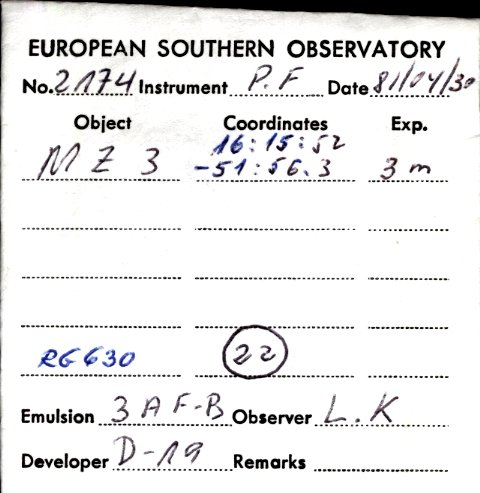 EUROPEAN SOUTHERN OBSERVATORY
No. 2174 Instrument P.F Date 81/04/30
Object Coordinates Exp.
16:15:52
MZ 3 -51:56.3 3 m
RG630 22
Emulsion 3AF-B Observer L.K
Developer D-19 Remarks